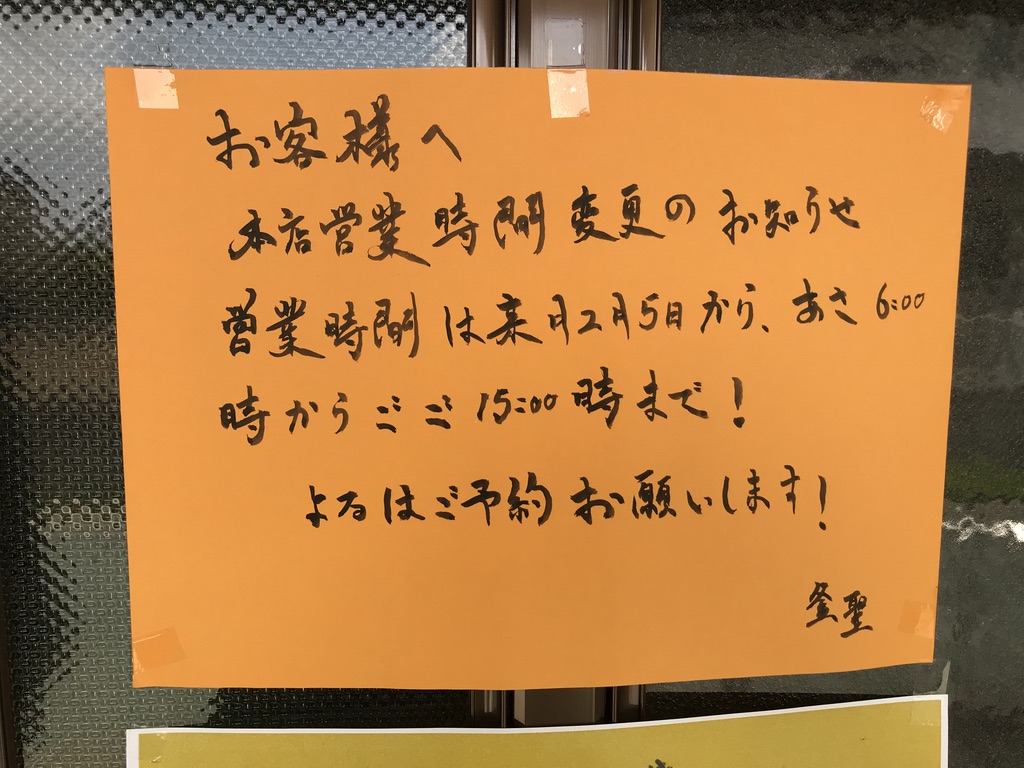 お客様へ
本店営業時間変更のお知らせ
営業時間は来月2月5日から、あさ6:00
時からごご15:00時まで!
よるはご予約お願いします!
釜聖